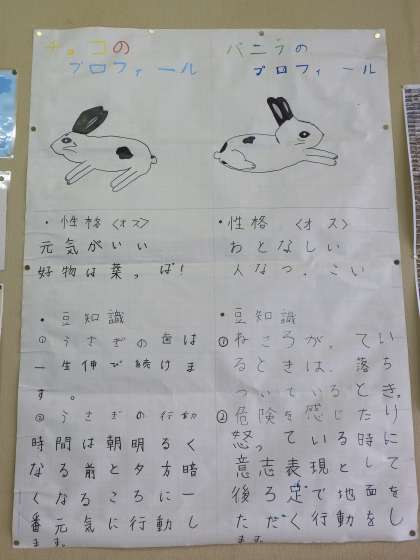 チョコの
プロフィール
・性格〈オス〉
元気がいい
好物は葉っぱ!
・豆知識
①うさぎの歯は
一生伸び続けま
す。
②うさぎの行動
時間は朝明るく
なる前と夕方暗
くなるころに一
番元気に行動し
ます。
バニラの
プロフィール
・性格〈オス〉
おとなしい
人なつっこい
・豆知識
①ねころがってい
るときは、落ち
ついているとき。
②危険を感じたり
怒っている時に
意志表現として
後ろ足で地面を
ただく行動をし
ます。